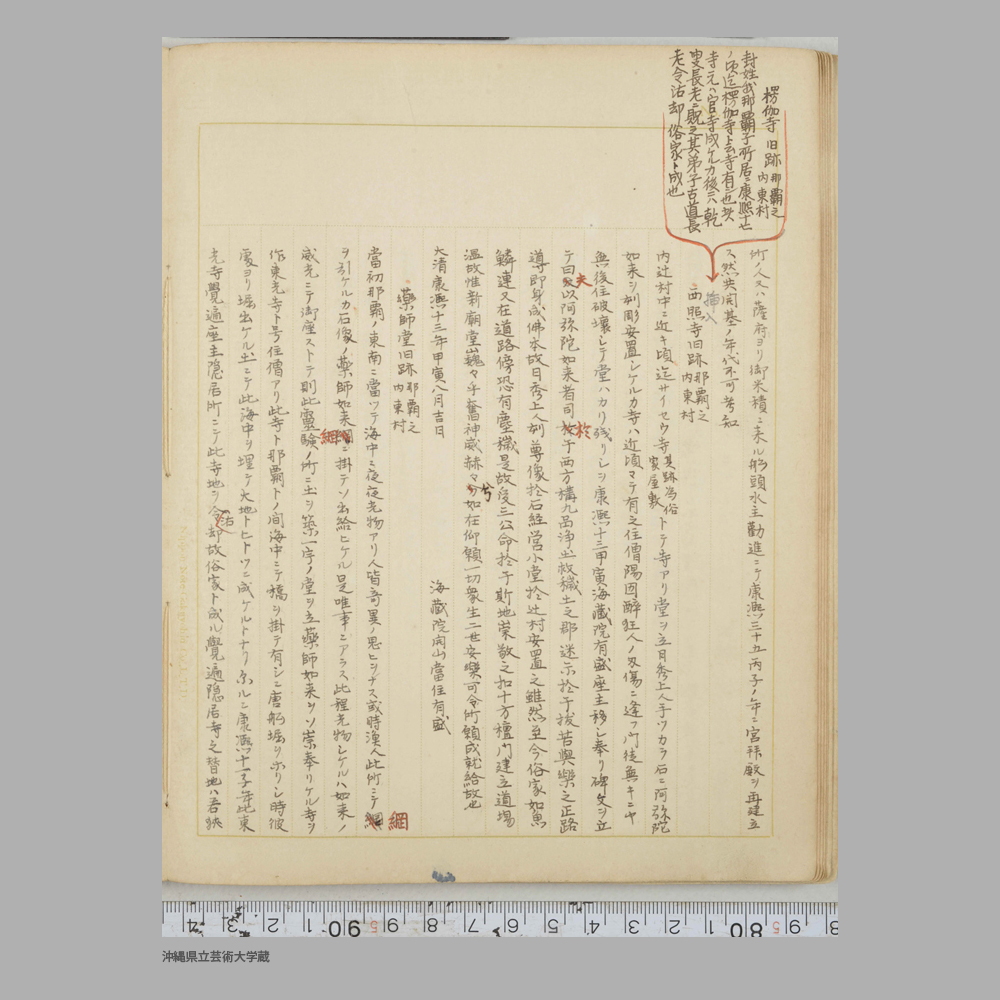 楞伽寺 旧跡 那覇之内東村
封姓我那覇子所居ニ康熙十七
ノ頃迄楞伽寺ト云寺有也此
寺元ハ官寺成ケルカ後ニハ乾
叟長老ニ賜之其弟子古道長
老令沽却俗家ト成也
所ノ人又ハ薩府ヨリ御米積ニ来ル船頭水主勧進ニテ康熙三十五丙子ノ年ニ宮拝殿ヲ再建立
ス然共開基ノ年代不可考知
挿入
西照寺旧跡 那覇之内東村
内辻村中ニ近キ頃迄サイセウ寺 其跡為俗家屋敷 トテ寺アリ堂ヲ立日秀上人手ツカラ石ニ阿弥陀
如来ヲ刻彫安置シケルカ寺ハ近頃マテ有之住僧陽国酔狂人ノ刃傷ニ逢フ門徒無キニヤ
無後住破壊シテ堂ハカリ残リシヲ康熙十三甲寅海蔵院有盛座主移シ奉リ碑文ヲ立
テ曰夫以阿弥陀如来者司於于西方構九品浄土救穢土之郡迷示於于抜苦與樂之正路
導即身成佛本故日秀上人刻尊像於石経営小堂於辻村安置之雖然至今俗家如魚
鱗連又在道路傍恐有塵穢是故後三公命於于斯地崇敬之扣十方檀門建立道場
温故惟新廟堂巍々乎奮神威赫々兮如在仰願一切衆生二世安樂可令所願成就給故也
大清康熙十三年甲寅八月吉日
海蔵院開山當住有盛
薬師堂旧跡 那覇之内東村
當初那覇ノ東南ニ當ツテ海中ニ夜夜光物アリ人皆奇異ノ思ヒヲナス或時漁人此所ニテ網
ヲ引ケルカ石像ノ薬師如来網ニ掛テソ出給ヒケル是唯事ニアラス此程光物シケルハ如来ノ
威光ニテ御座ストテ則此霊験ノ所ニ土ヲ築一宇ノ堂ヲ立薬師如来ヲソ崇奉リケル寺ヲ
作東光寺ト号住僧アリ此寺ト那覇トノ間海中ニテ橋ヲ掛テ有シニ唐船堀ヲホリシ時彼
處ヨリ堀出ケル土ニテ此海中ヲ埋テ大地トヒトツニ成ケルトナリ糸ルニ康熙十一子年此東
光寺覺遍座主隠居所ニテ此寺地ヲ令沽却故俗家ト成ル覺遍隠居寺之替地ハ若狭
網
網